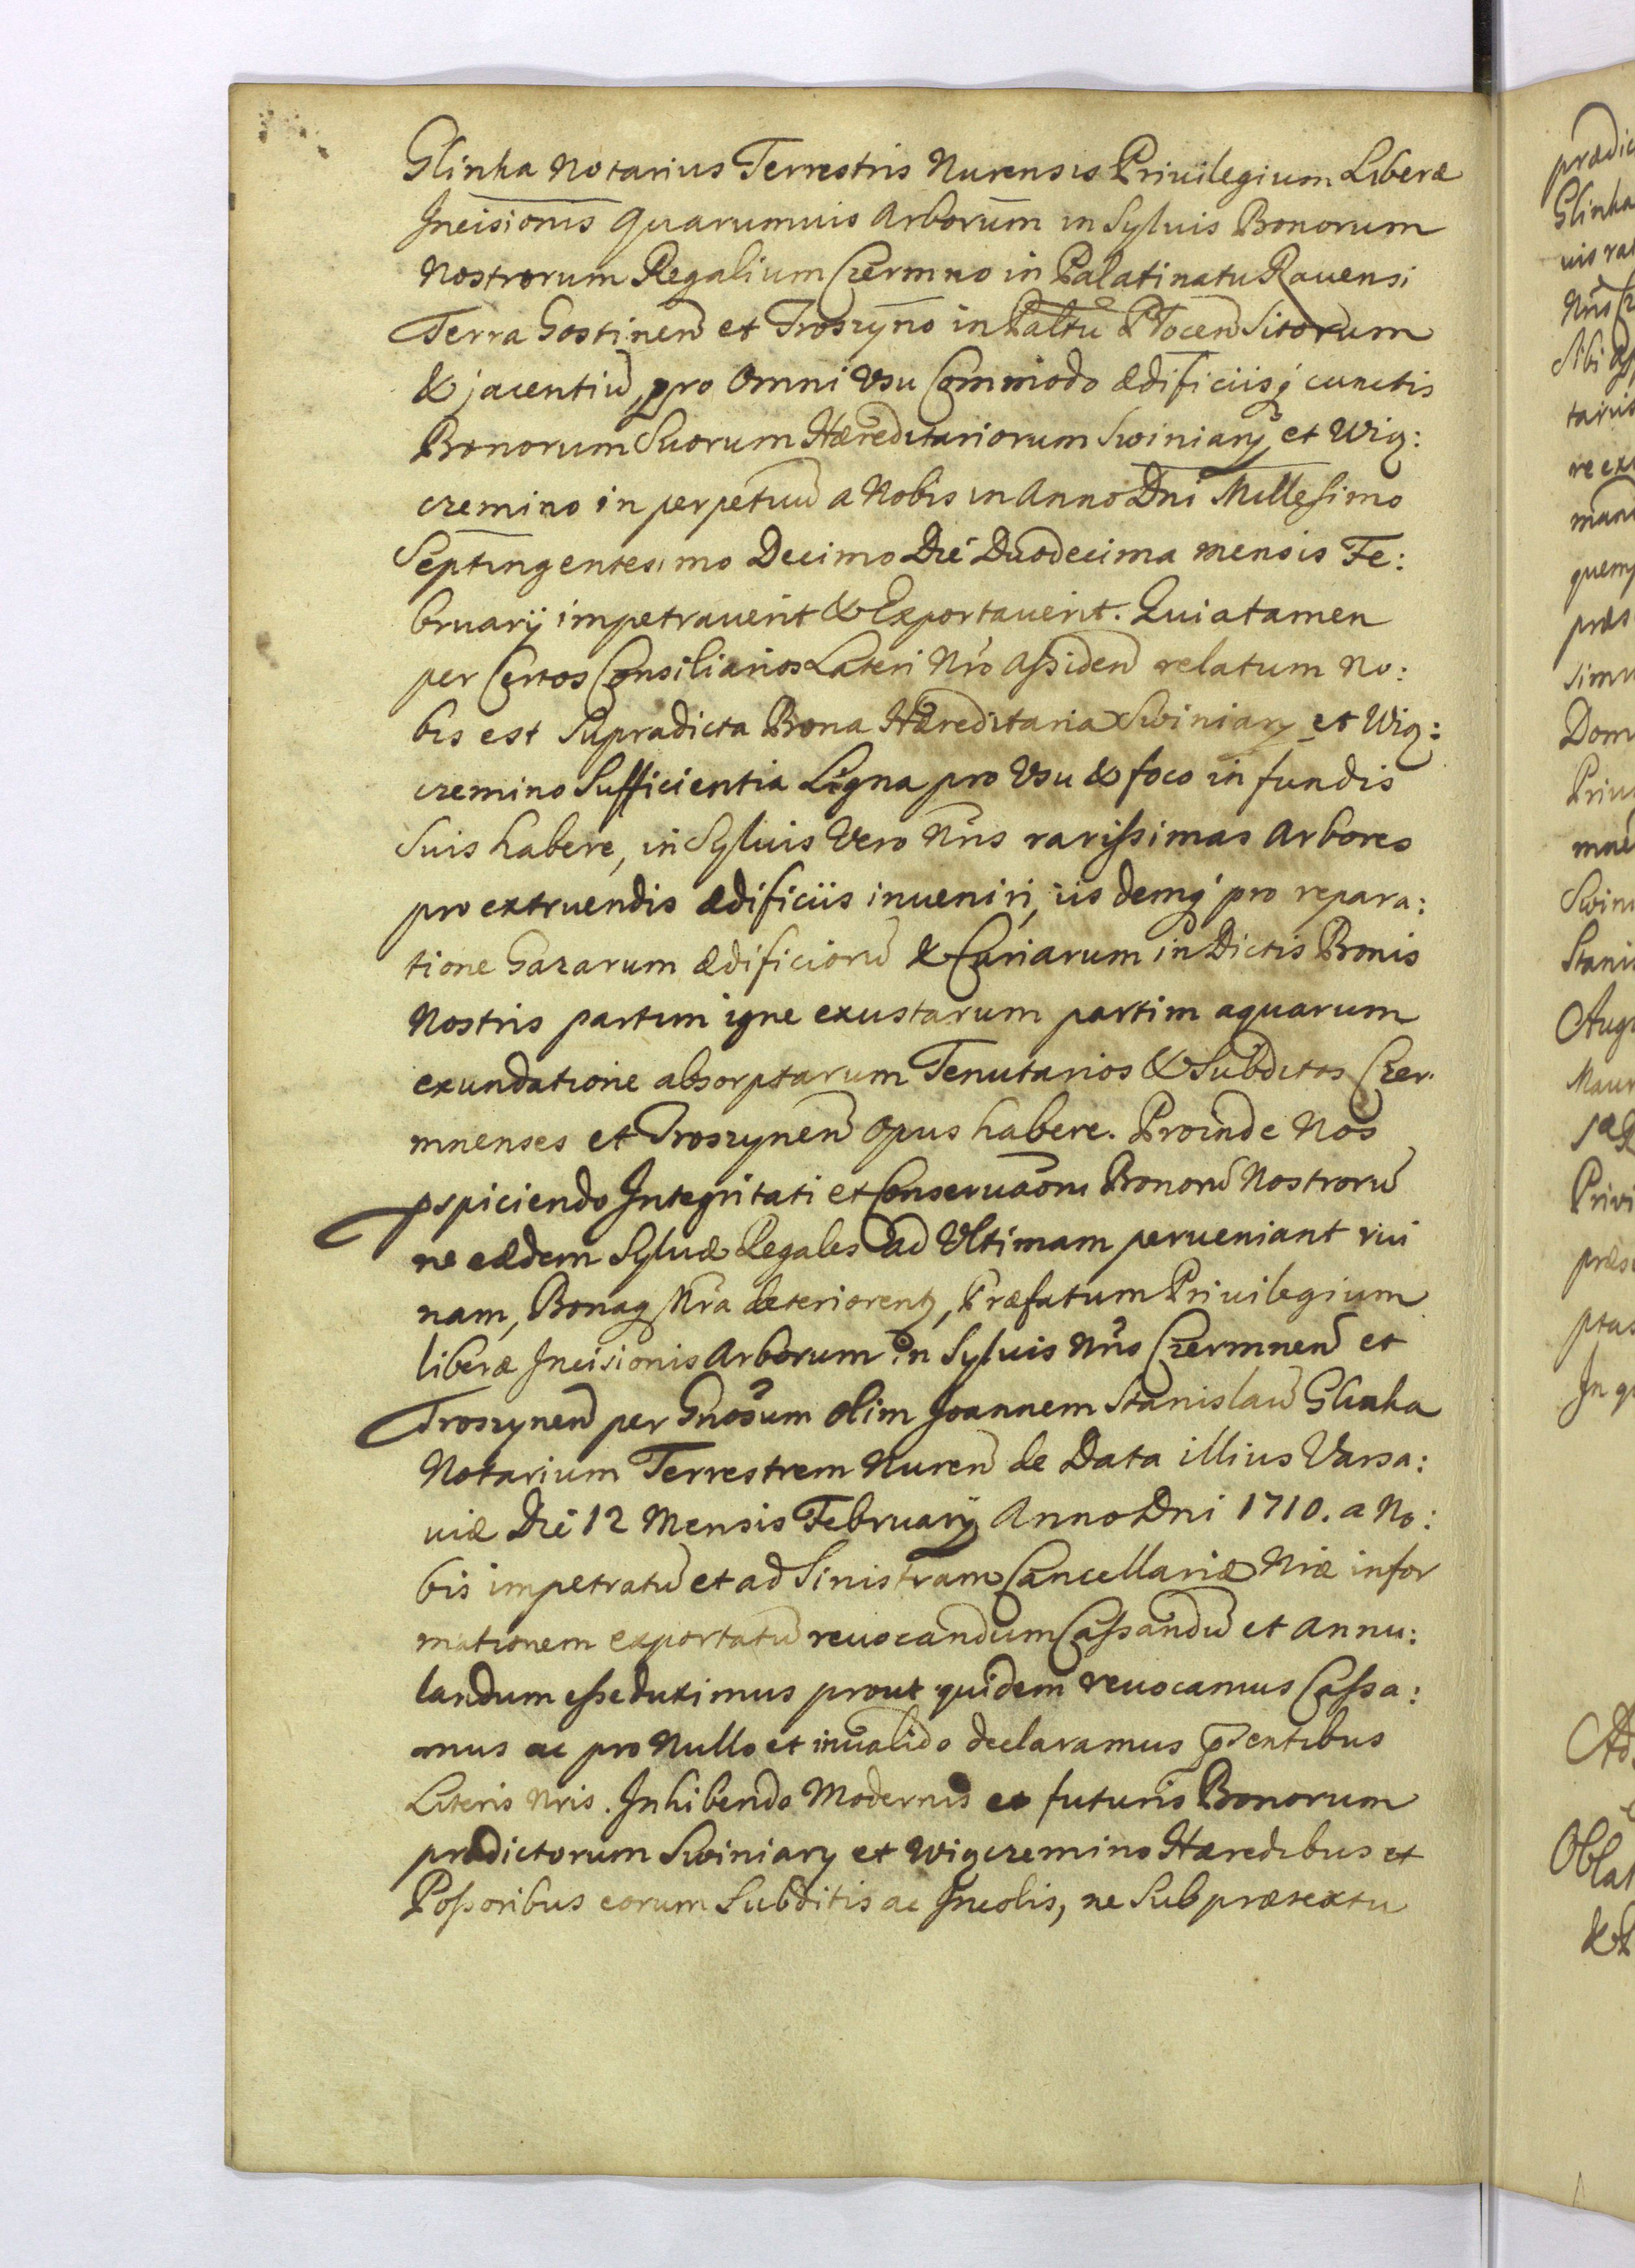 Glinka Notarius Terrestris Nurensis Priuilegium Liberæ
Incisionis quarumuis Arborum in Syluis Bonorum
Nostrorum Regalium Czermno in Palatinatu Rauensi
Terra Gostinen̄ et Troszyno in Paltū Plocen̄ Sitorum
& jacentiū, pro Omni Vsu Commodo ædificiisq́ cunctis
Bonorum Suorum Hæreditariorum Swiniary et Wią:
czemino in perpetuū a Nobis in Anno Dni Millesimo
Septingentesimo Decimo Die Duodecima mensis Fe:
bruarÿ impetrauerit & Exportauerit. Quia tamen
per Certos Consiliarios Lateri Nr̃o assiden̄ relatum no:
bis est Supradicta Bona Hæreditaria Swiniary et Wią:
czemino Sufficientia Ligna pro Vsu & foco in fundis
Suis habere, in Syluis Vero Nr̃is rarissimas Arbores
pro extruendis ædificiis inueniri, iisdemq́ pro repara:
tione Gazarum ædificiorū & Curiarum in Dictis Bonis
Nostris partim igne exustarum partim aquarum
exundatione absorptarum Tenutarios & Subditos Czer:
mnenses et Troszynen̄ opus habere. Proinde Nos
pspiciendo Integritati et Conseruaōni Bonorū Nostrorū
ne eædem Syluæ Regales ad Vltimam perueniant rui
nam, Bonaq Nr̃a deteriorentꝫ, Præfatum Priuilegium
liberæ Incisionis Arborum in Syluis Nr̃is Czermnen̄ et
Troszynen̄ per Gnōsum olim Joannem Stanislaū Glinka
Notarium Terrestrem Nuren̄ de Data illius Varsa:
uiæ Die 12 Mensis Februarÿ Anno Dni 1710. a No:
bis impetratū et ad Sinistram Cancellariæ Nr̃æ infor
mationem exportatū reuocandum Cassandū et annu:
landum esse duximus prout quidem reuocamus Cassa:
mus ac pro Nullo et inualido declaramus p̃sentibus
Literis Nr̃is. Inhibendo Modernis et futuris Bonorum
prædictorum Swiniary et Wiączemino Hæredibus et
Possoribus eorum Subditis ac Incolis, ne Sub prætextu